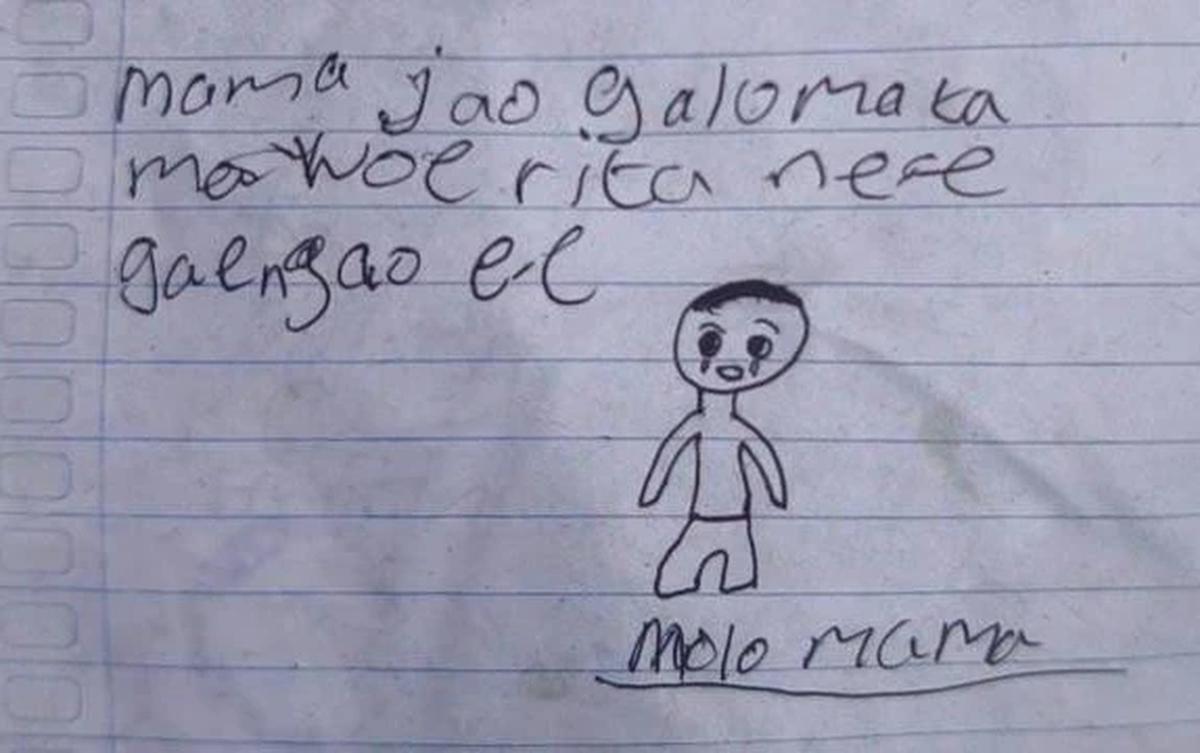 mama jao galomaka
mo woe rita nese
gaengao e-e
molo mama